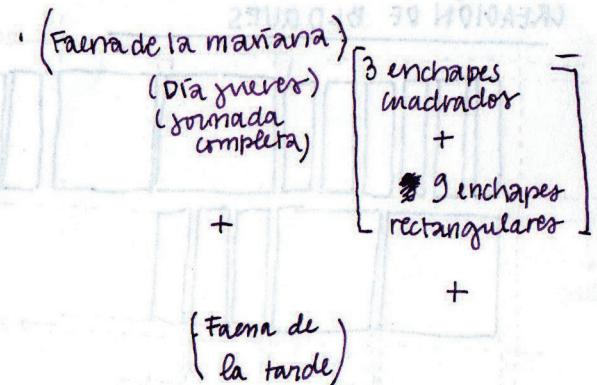 · (Faena de la mañana)
(Día jueves)
(jornada
completa)
[3 enchapes =
cuadrados
+
9 enchapes
rectangulares]
+
+
(Faena de
la tarde)
CREACION DE BLOQUES